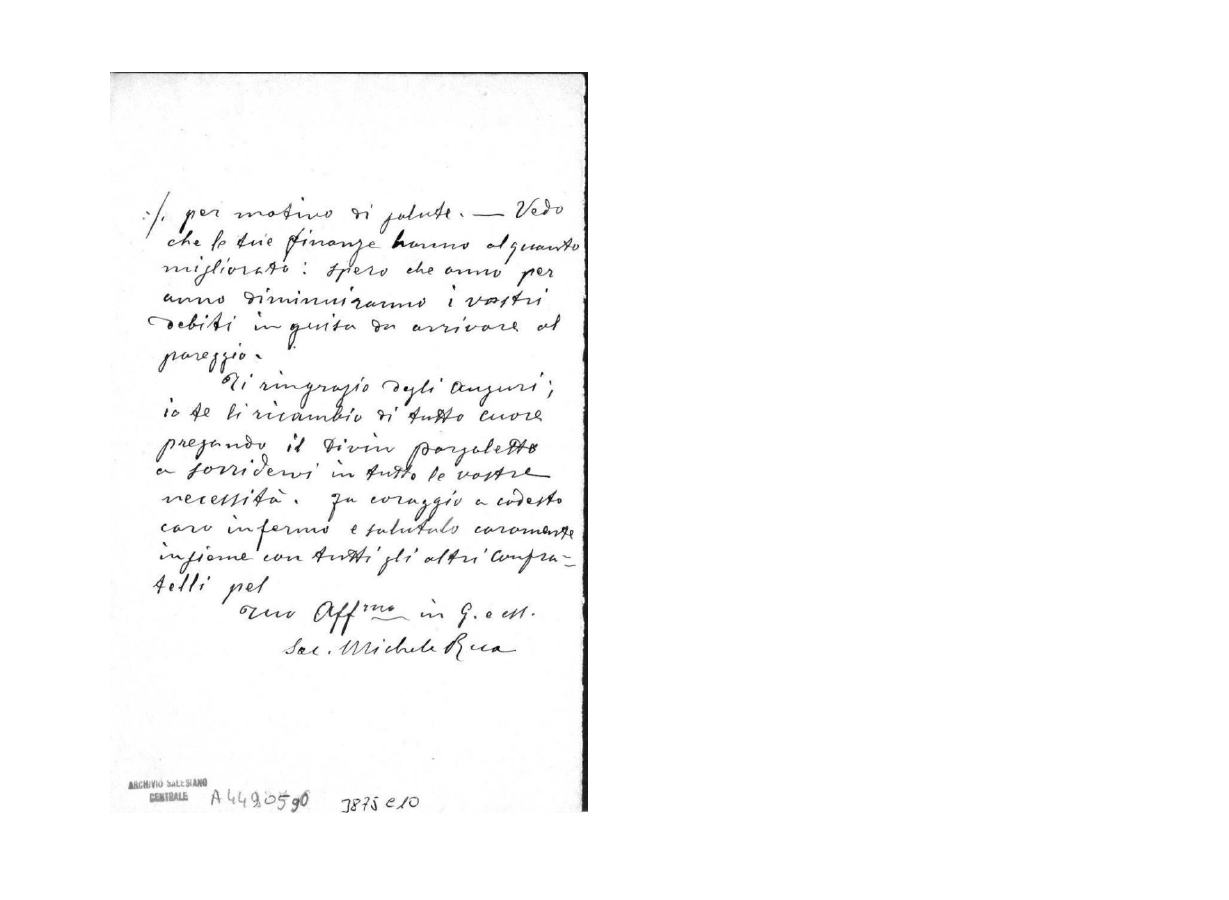 ./. per motivo di salute. — Vedo
che le tue finanze hanno alquanto
migliorato: spero che anno per
anno diminuiranno i vostri
debiti in guisa da arrivare al
pareggio.
Ti ringrazio degli auguri;
io te li ricambio di tutto cuore
pregando il Divin Pargoletto
a sorridervi in tutte le vostre
necessità. Fa coraggio a codesto
caro infermo e salutalo caramente
insieme con tutti gli altri Confra=
telli pel
Tuo Aff.mo in G. e M.
Sac. Michele Rua
ARCHIVIO SALESIANO
CENTRALE
A4490590 3875 C10